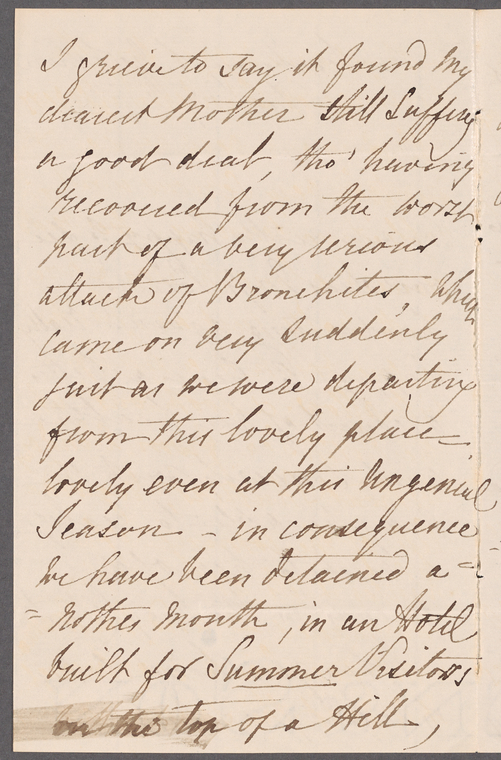 I grieve to say it found my
dearest Mother still suffering
a good deal, tho' having
recovered from the worst
part of a very serious
attack of Bronchites, which
came on very suddenly
just as we were departing
from this lovely place –
lovely even at this ungenial
Season – in consequence
we have been detained a=
=nother month, in an Hotel
built for Summer Visitors
on the top of a Hill,